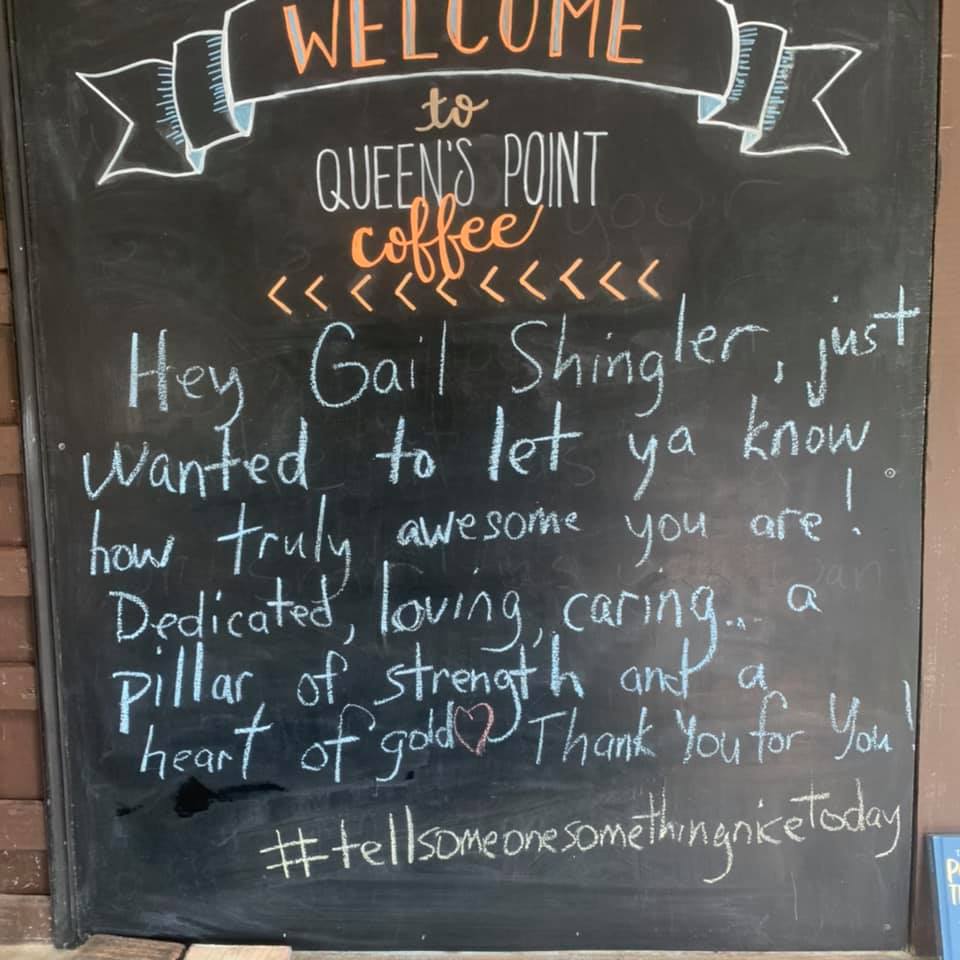 WELCOME
to
QUEEN'S POINT
coffee
Hey Gail Shingler, just
wanted to let ya know
how truly awesome you are!
Dedicated, loving, caring... a
pillar of strength and a
heart of gold♡ Thank You for You!
#tellsomeonesomethingniceToday